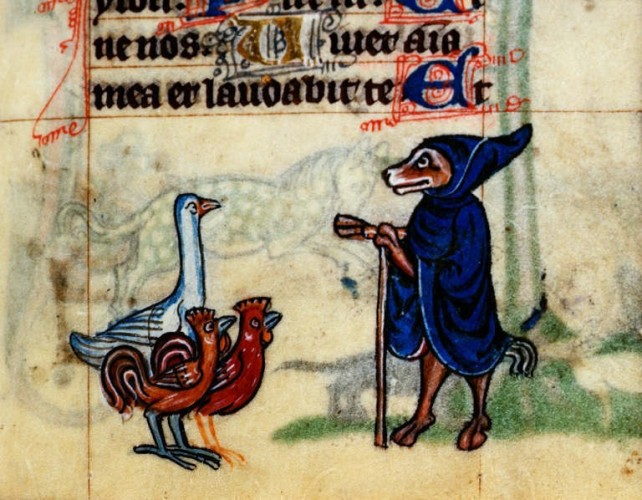 ne nos Uiuet aīa
mea et laudabit te Et